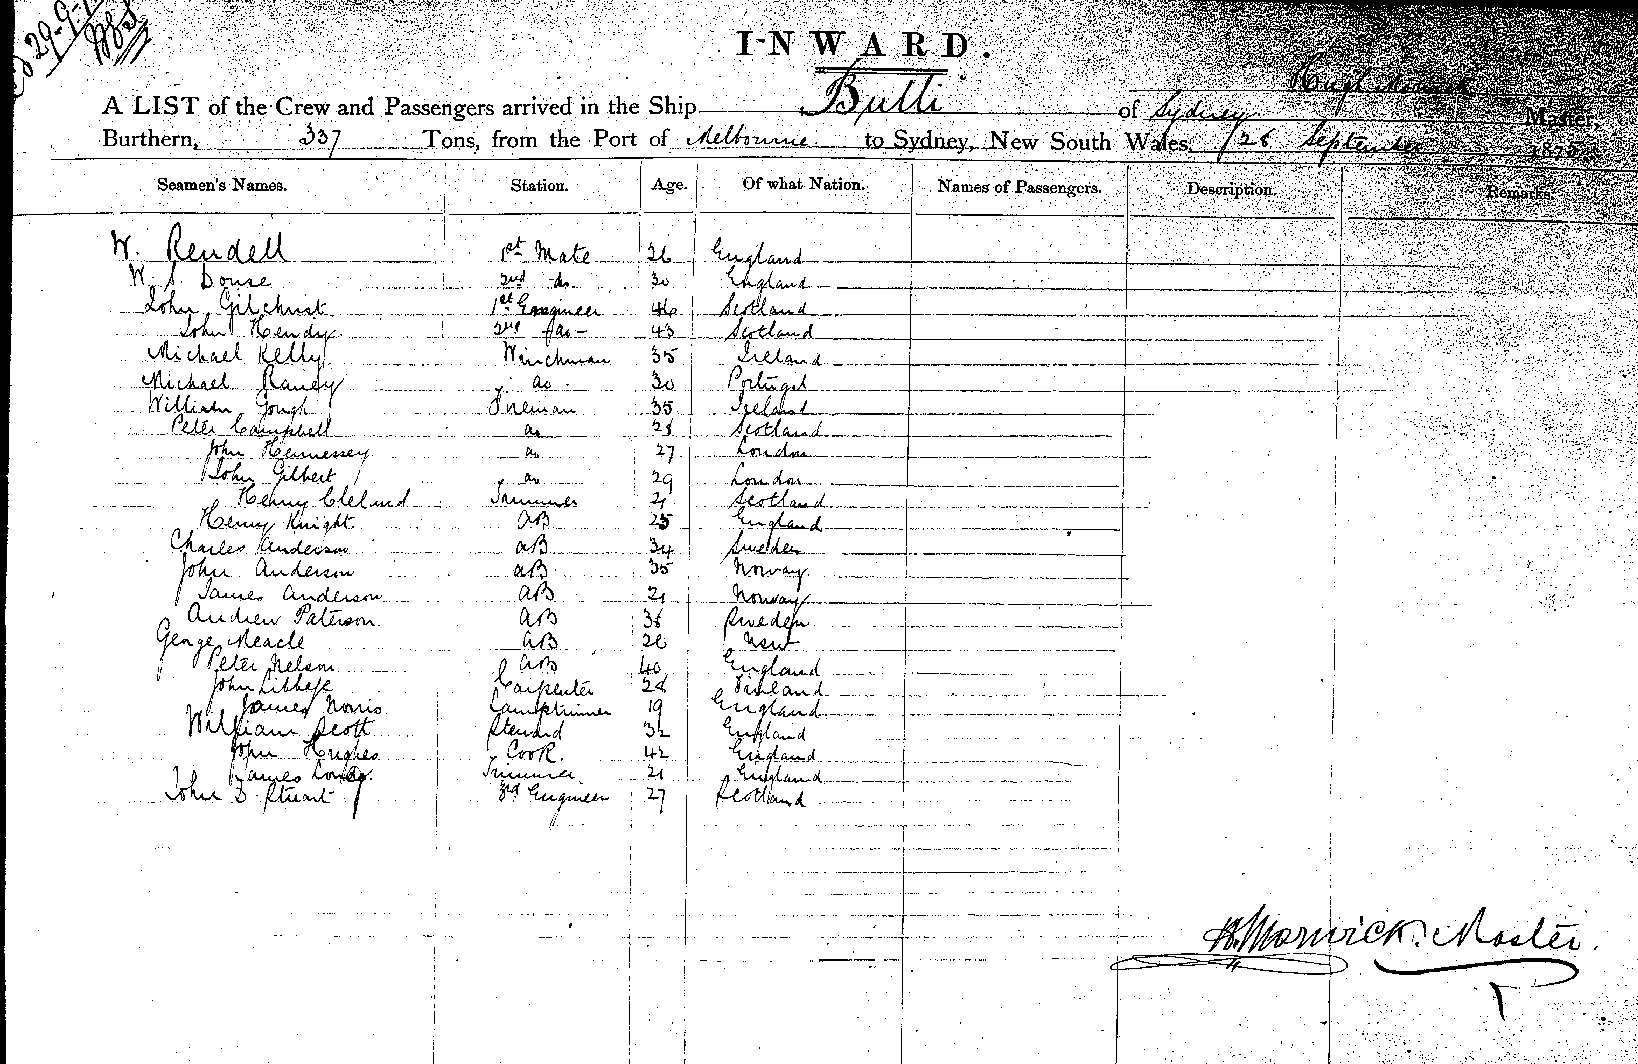 29-9-
INWARD.
Hugh
A LIST of the Crew and Passengers arrived in the Ship Bulli of Sydney Master,
Burthern, 337 Tons, from the Port of Melbourne to Sydney, New South Wales, 26 September 187
Seamen's Names. Station. Age. Of what Nation. Names of Passengers. Description. Remarks.
W. Rendell 1st Mate 26 England
W. S. Douse 2nd do 30 England
John Gilchrist 1st Engineer 46 Scotland
John Hendy 2nd do 43 Scotland
Michael Kelly Winchman 35 Ireland
Michael do 30 Portugal
William Gough Fireman 35 Ireland
Peter Campbell do 28 Scotland
John Hennessey do 27 London
John Gilbert do 29 London
Henry Cleland Trimmer 21 Scotland
Henry Knight AB 25 England
Charles Anderson AB 34 Sweden
John Anderson AB 35 Norway
James Anderson AB 21 Norway
Andrew Paterson AB 36 Sweden
George Meacle AB NSW
Peter Nelson AB 40 England
John Carpenter 28
James Norris Lamptrimmer 19 England
William Scott Steward 32 England
John Hughes Cook. 42 England
James Trimmer 21 England
John D Stuart 3rd Engineer 27 Scotland
H. Morwick. Master.